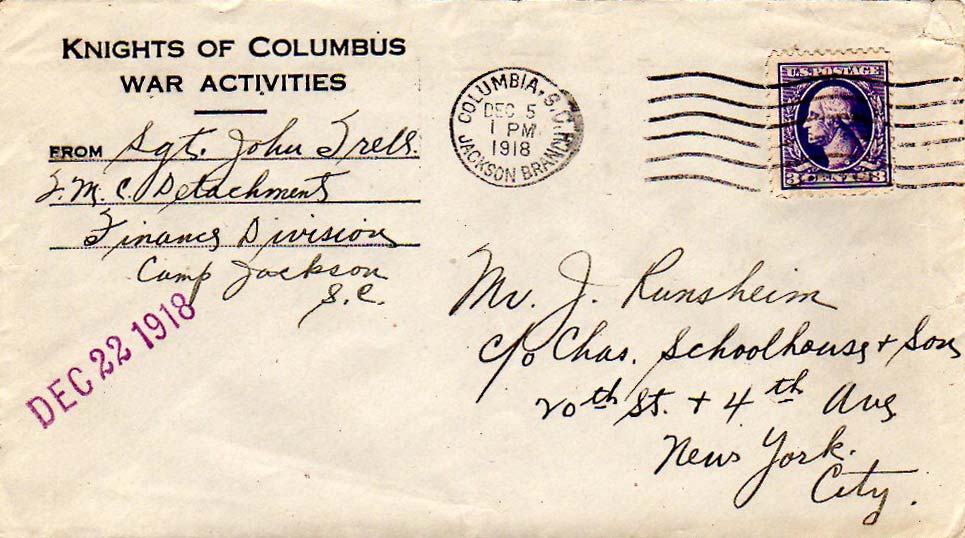 KNIGHTS OF COLUMBUS
WAR ACTIVITIES
FROM Sgt. John Trells.
Q.M.C. Detachment
Finance Division
Camp Jackson
S.C.
DEC 22 1918
COLUMBIA, S.C.
DEC 5
1 PM
1918
JACKSON BRANCH
U.S. POSTAGE
3 CENTS 3
Mr. J. Runsheim
c/o Chas. Schoolhouse + Son
20th St. + 4th Ave
New York.
City.